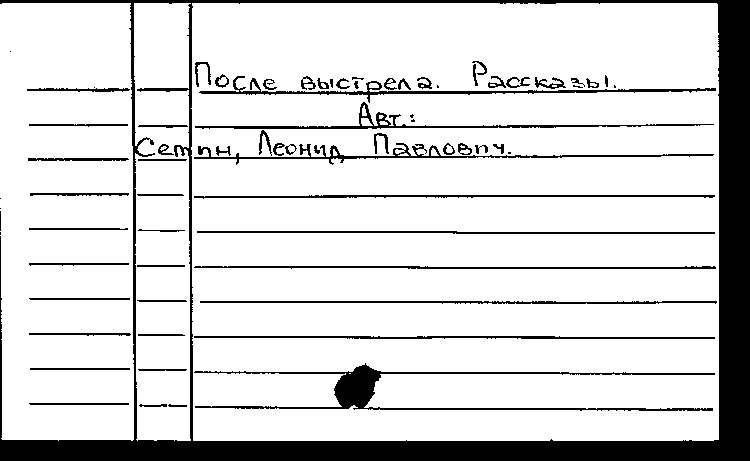 После выстрела. Рассказы.
Авт.:
Сетин, Леонид Павлович.